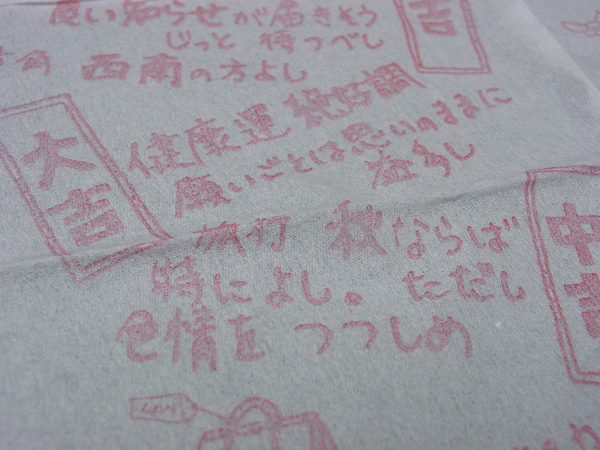 良い知らせが届きそう
じっと 待つべし
吉
方角 西南の方よし
大吉
健康運 絶好調
願いごとは思いのままに
益多し
旅行 秋ならば
特によし。ただし
色情をつつしめ
中吉